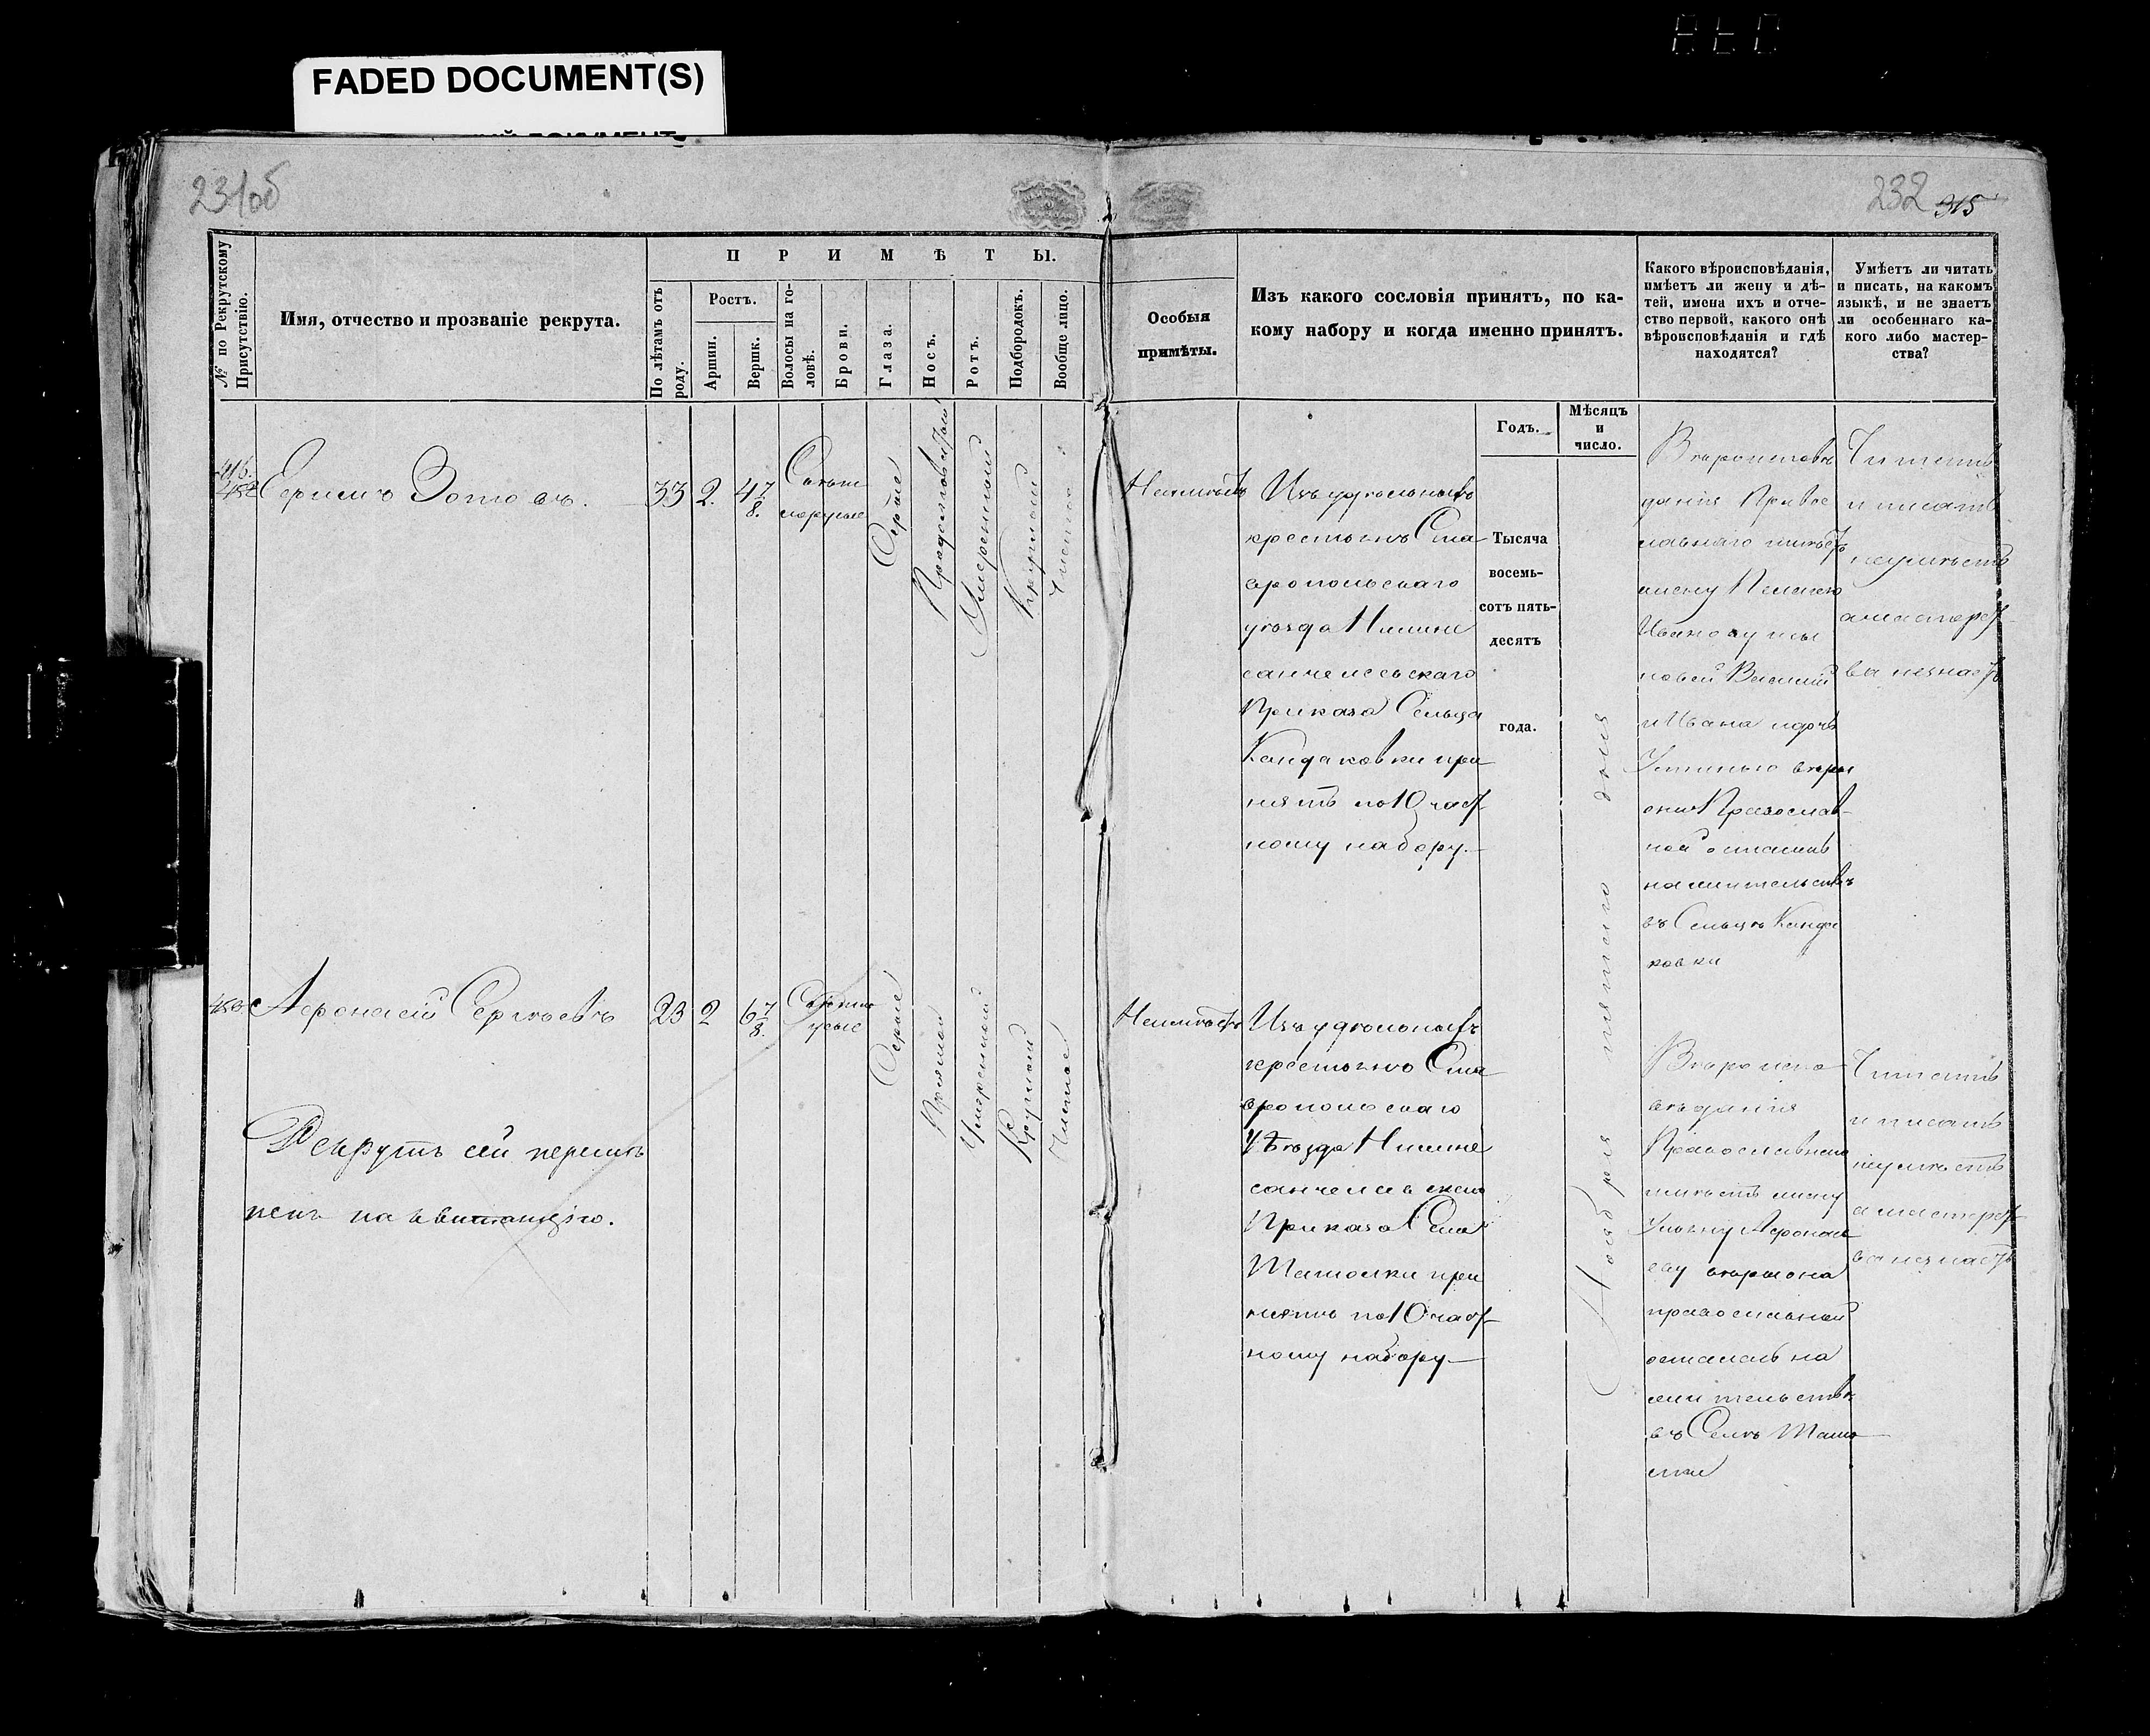 FADED DOCUMENT(S)
231об
232 315
№ по Рекрутскому Присутствію.
Имя, отчество и прозваніе рекрута.
П Р И М Ѣ Т Ы.
По лѣтамъ отъ роду.
Ростъ.
Аршин.
Вершк.
Волосы на головѣ.
Брови.
Глаза.
Носъ.
Ротъ.
Подбородокъ.
Вообще лицо.
Особыя
примѣты.
Изъ какого сословія принятъ, по ка-
кому набору и когда именно принятъ.
Какого вѣроисповѣданія,
имѣетъ ли жену и дѣ-
тей, имена ихъ и отче-
ство первой, какого онѣ
вѣроисповѣданія и гдѣ
находятся?
Умѣетъ ли читать
и писать, на какомъ
языкѣ, и не знаетъ
ли особеннаго ка-
кого либо мастер-
ства?
Годъ.
Мѣсяцъ
и
число.
Ефимъ Зотовъ.
33 2. 4 7/8.
Свѣтло
русые
Сѣрые
Продолговатый
Умеренный
Круглый
Чистое
Неимѣетъ
Изъ удѣльныхъ
крестьянъ Ста
вропольскаго
уѣзда Нижне
санчелеевскаго
Приказа Сельца
Кандаковки при
нятъ по 10 част
ному набору.
Тысяча
восемь-
сотъ пять-
десятъ
года.
Ноября пятого дня
Вѣроисповѣ
данія Право
славнаго имѣетъ
жену Пелагею
Иванову сы
новей Василій
и Ивана и дочь
Устинью вѣры
они Православ-
ной остались
на жительствѣ
въ Сельцѣ Канда
ковки
Читать
и писать
неумѣетъ
а мастерст
ва незнаетъ
Афонасій Сергѣевъ
23 2 6 7/8.
Свѣтло
русые
Серые
Прямой
Умеренный
Круглый
Чистое
Рекрутъ сей перемѣ
ненъ на квитанцію.
Неимѣетъ
Изъ удѣльныхъ
крестьянъ Ста
вропольскаго
Уѣзда Нижне
санчелеевскаго
Приказа Села
Ташолки при
нятъ по 10 част
ному набору
Вѣроиспо
вѣданія
Православнаго
имѣетъ жену
Ульяну Афонась
еву вѣры она
православной
осталась на
жительствѣ
въ Селѣ Ташо
лки
Читать
и писать
неумѣетъ
а мастерст
ва незнаетъ